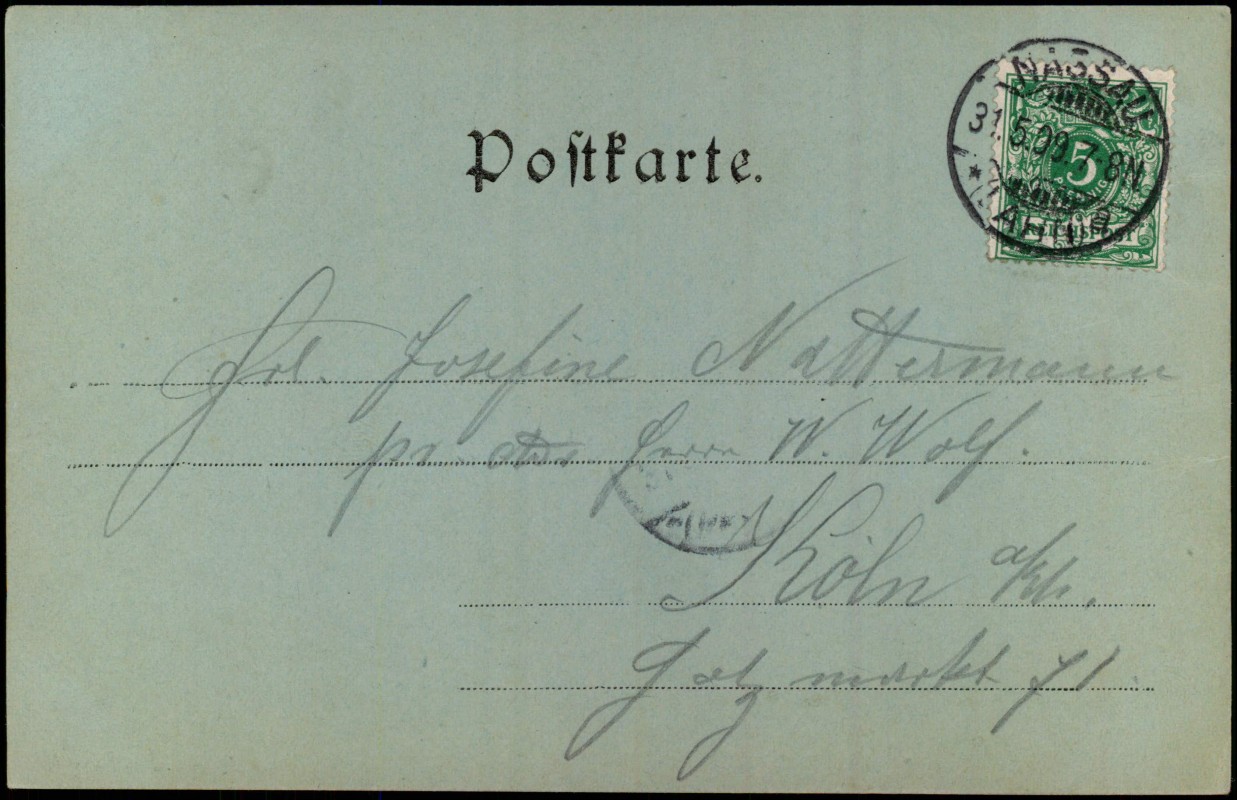 Poſtkarte.
NASSAU
31.5.99.7-8N.
* (LAHN) *
5
PFENNIG
REICHSPOST
Frl. Josefine Nattermann
pr. adr. Herrn W. Wolf.
Köln a/Rh.
Holzmarkt 71